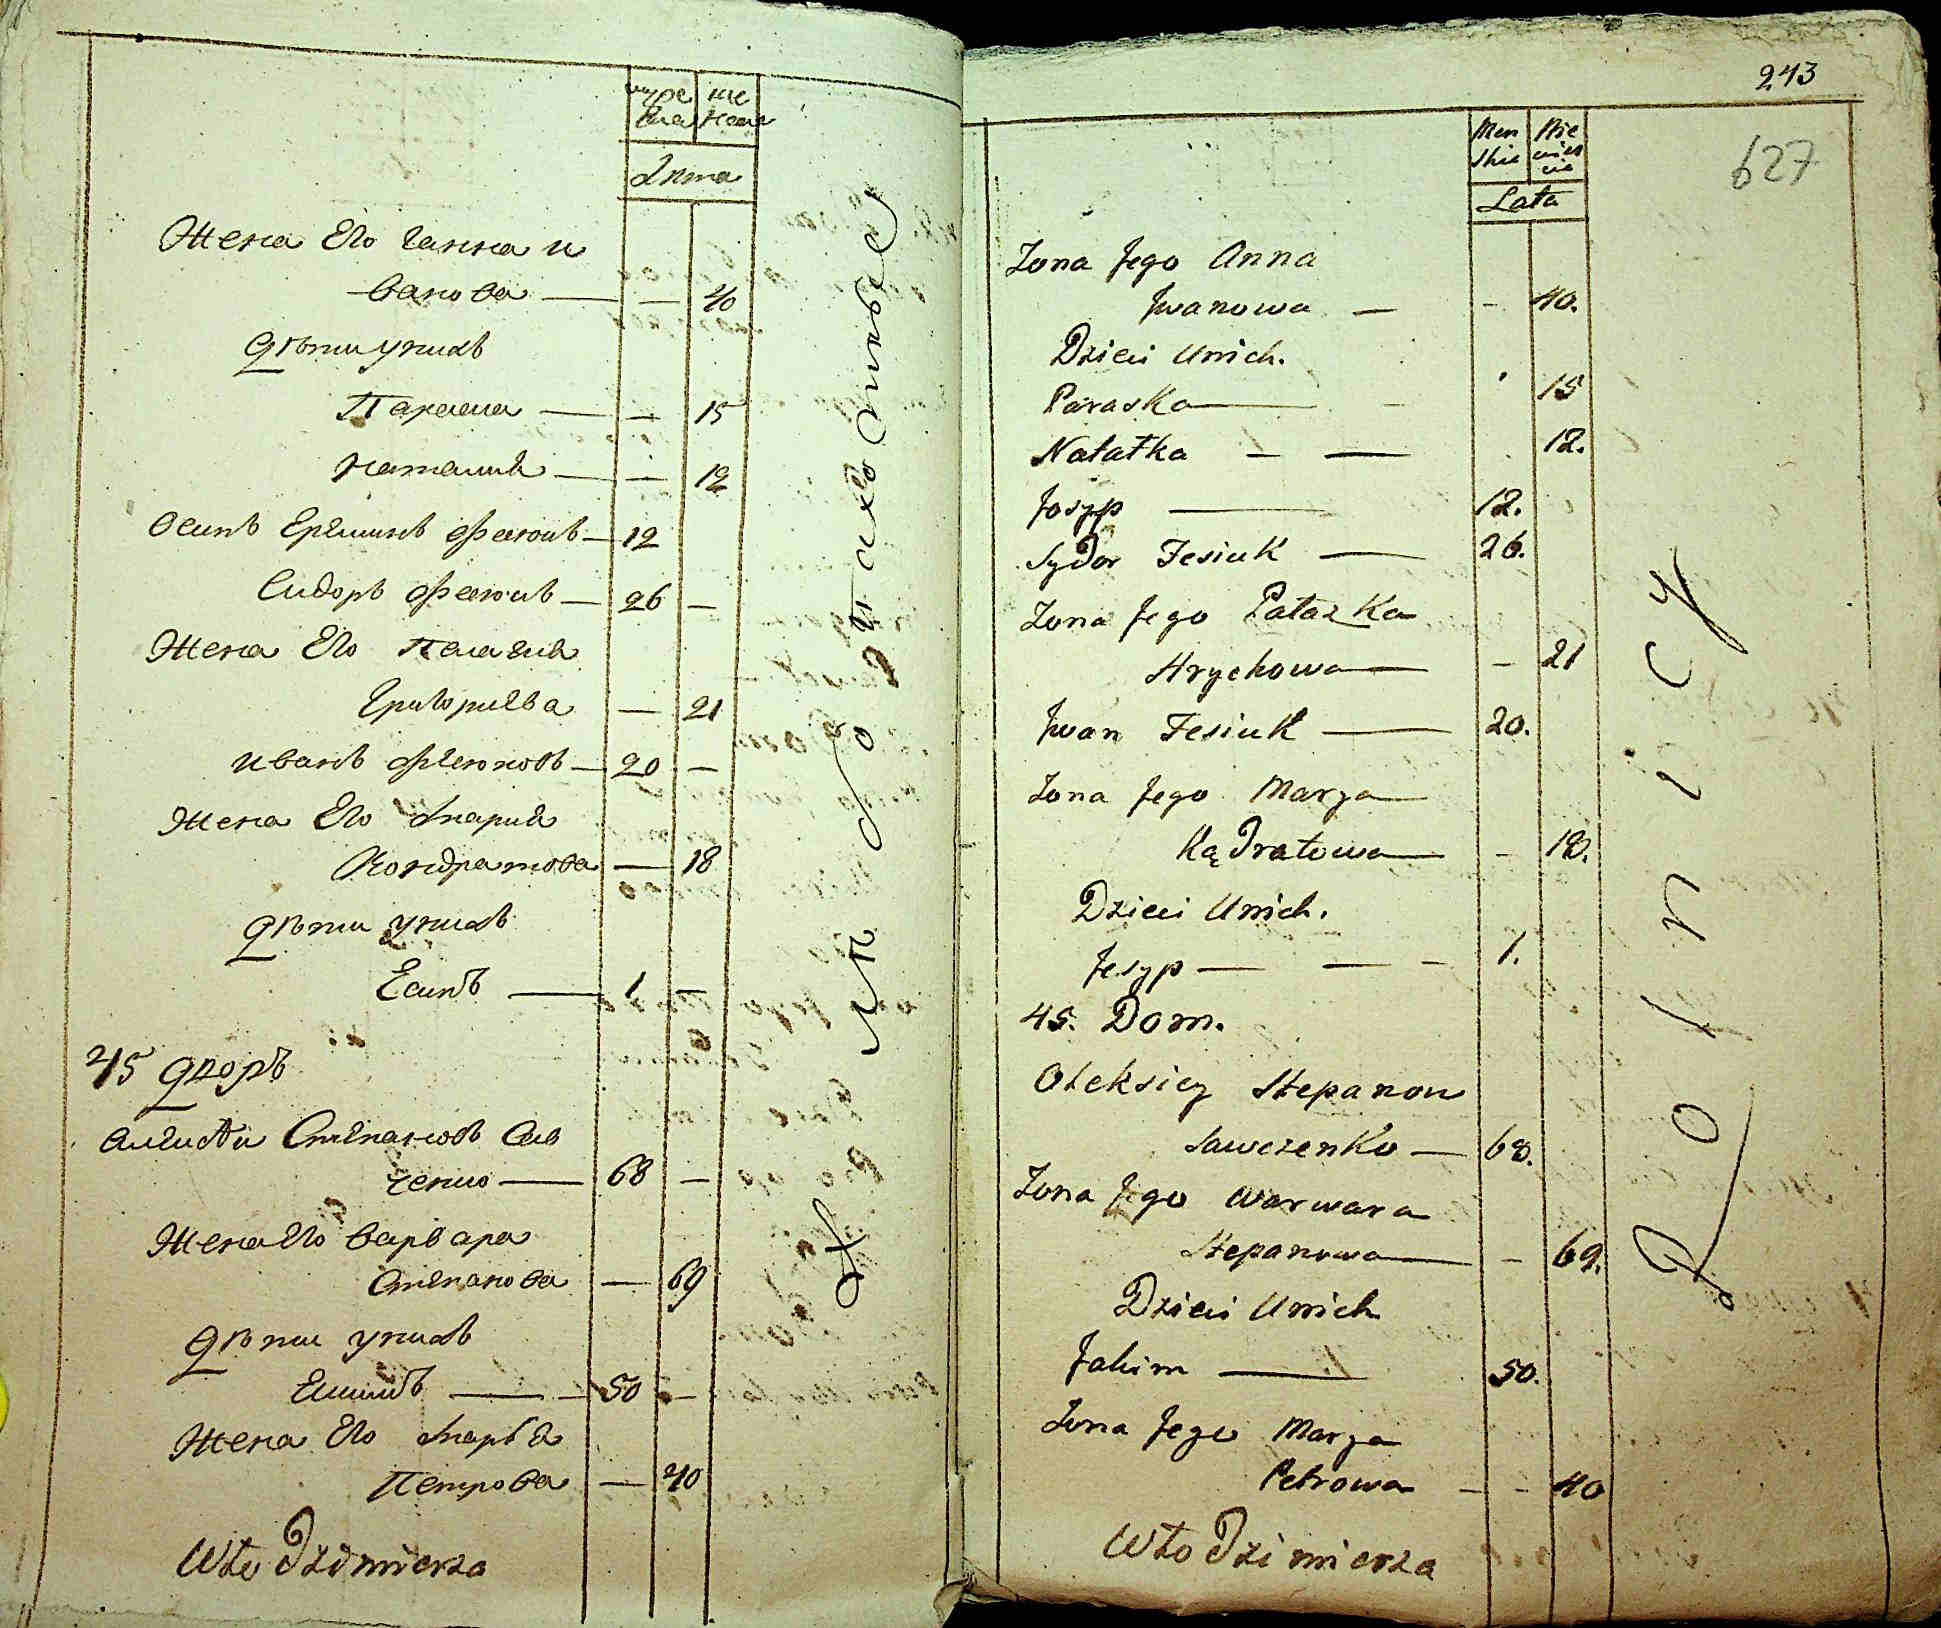 муже
ска
же
нска
Лѣта
Жена Его Ганна и
ванова — — 40
Дѣти у нихъ
Параска — — 15
Наталия — — 12
Осипъ 12
Сидоръ Фесюкъ — 26 —
Жена Его Пелагия
Григориева — 21
Иванъ Фесюковъ — 20 —
Жена Его Мария
Кондратова — 18
Дѣти у нихъ
Есипъ — 1 —
45 Дворъ
Алексѣй Степановъ Сав
ченко — 68 —
Жена Его Варвара
Степанова — 69
Дѣти у нихъ
Екимъ — 50 —
Жена Его Марья
Петрова — 40
Włodzimierza
243
627
Męn
skie
Nie
wies
cie
Lata
Zona Jego Anna
Jwanowa — - 40.
Dzieci Unich.
Paraska — 15
Natałka — — 12.
Josyp — 12.
Sydor Fesiuk — 26.
Zona Jego Pałazka
Hrychowa — - 21
Jwan Fesiuk — 20.
Zona Jego Marya
Kądratowa — - 18.
Dzieci Unich.
Jesyp — — - 1.
45. Dom.
Oleksiey Stepanow
Sawczenko — 68.
Zona Jego Warwara
Stepanowa — - 69.
Dzieci Unich
Jakim — 50.
Zona Jego Marya
Petrowa - - 40
Włodzimierza
Rolnicy